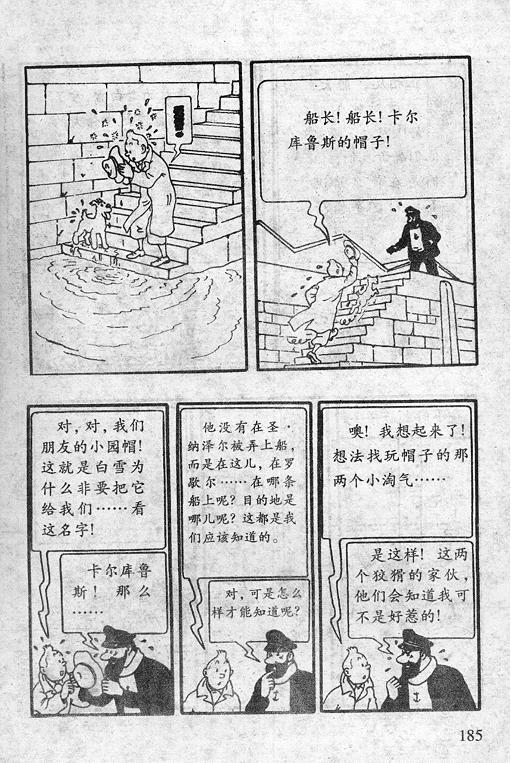 船长！船长！卡尔
库鲁斯的帽子！
对，对，我们
朋友的小园帽！
这就是白雪为
什么非要把它
给我们……看
这名字！
卡尔库鲁
斯！那么
……
他没有在圣·
纳泽尔被弄上船，
而是在这儿，在罗
歇尔……在哪条
船上呢？目的地是
哪儿呢？这都是我
们应该知道的。
对，可是怎么
样才能知道呢？
噢！我想起来了！
想法找玩帽子的那
两个小淘气……
是这样！这两
个狡猾的家伙，
他们会知道我可
不是好惹的！
185